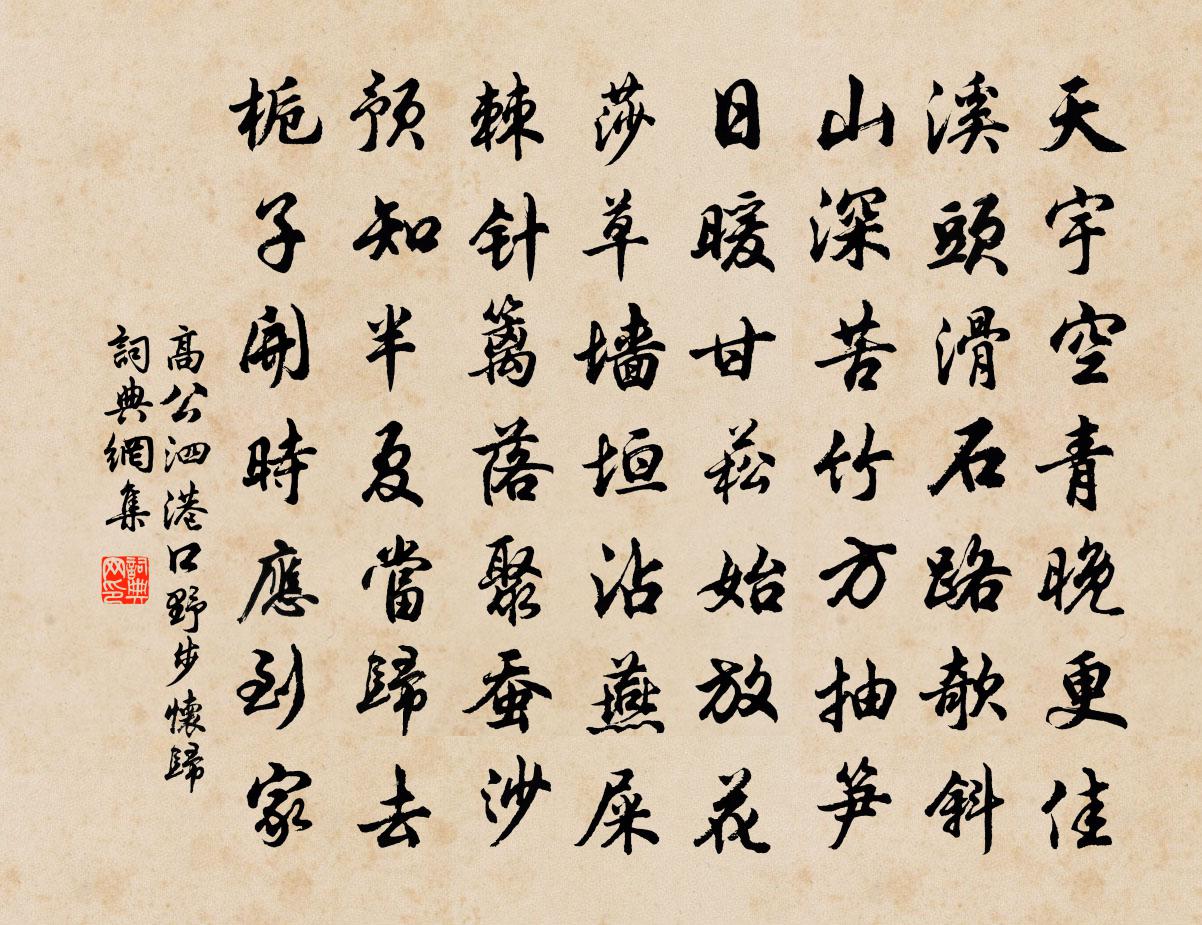 天宇空青晚更佳
溪頭滑石路欹斜
山深苦竹方抽笋
日暖甘菘始放花
莎草墙垣沾燕屎
棘针籬落聚蚕沙
预知半夏當歸去
栀子開時應到家
高公泗港口野步懷歸
詞典網集
詞典网印